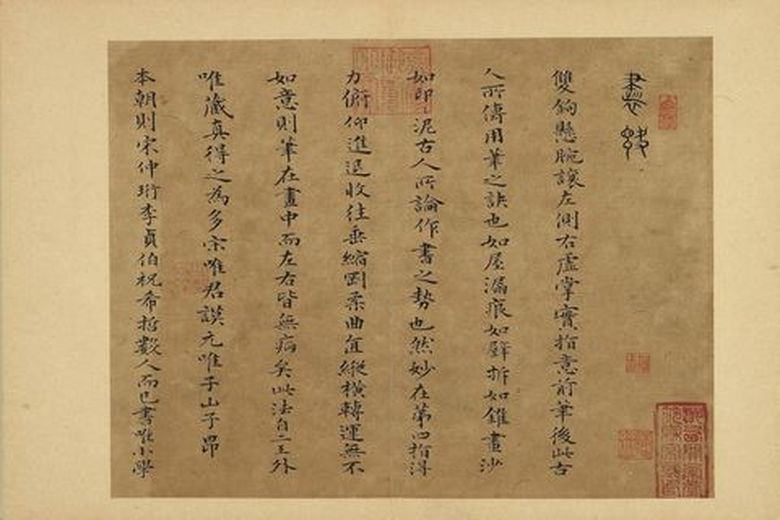 書訣
雙鉤懸腕讓左側右虛掌實指意前筆後此古
人所傳用筆之訣也如屋漏痕如壁拆如錐畫沙
如印〻泥古人所論作書之勢也然妙在第四指得
力俯仰進退收往垂縮剛柔曲直縱橫轉運無不
如意則筆在畫中而左右皆無病矣此法自二王外
唯藏真得之為多宋唯君謨元唯子山子昂
本朝則宋仲珩李貞伯祝希哲數人而已書唯小學